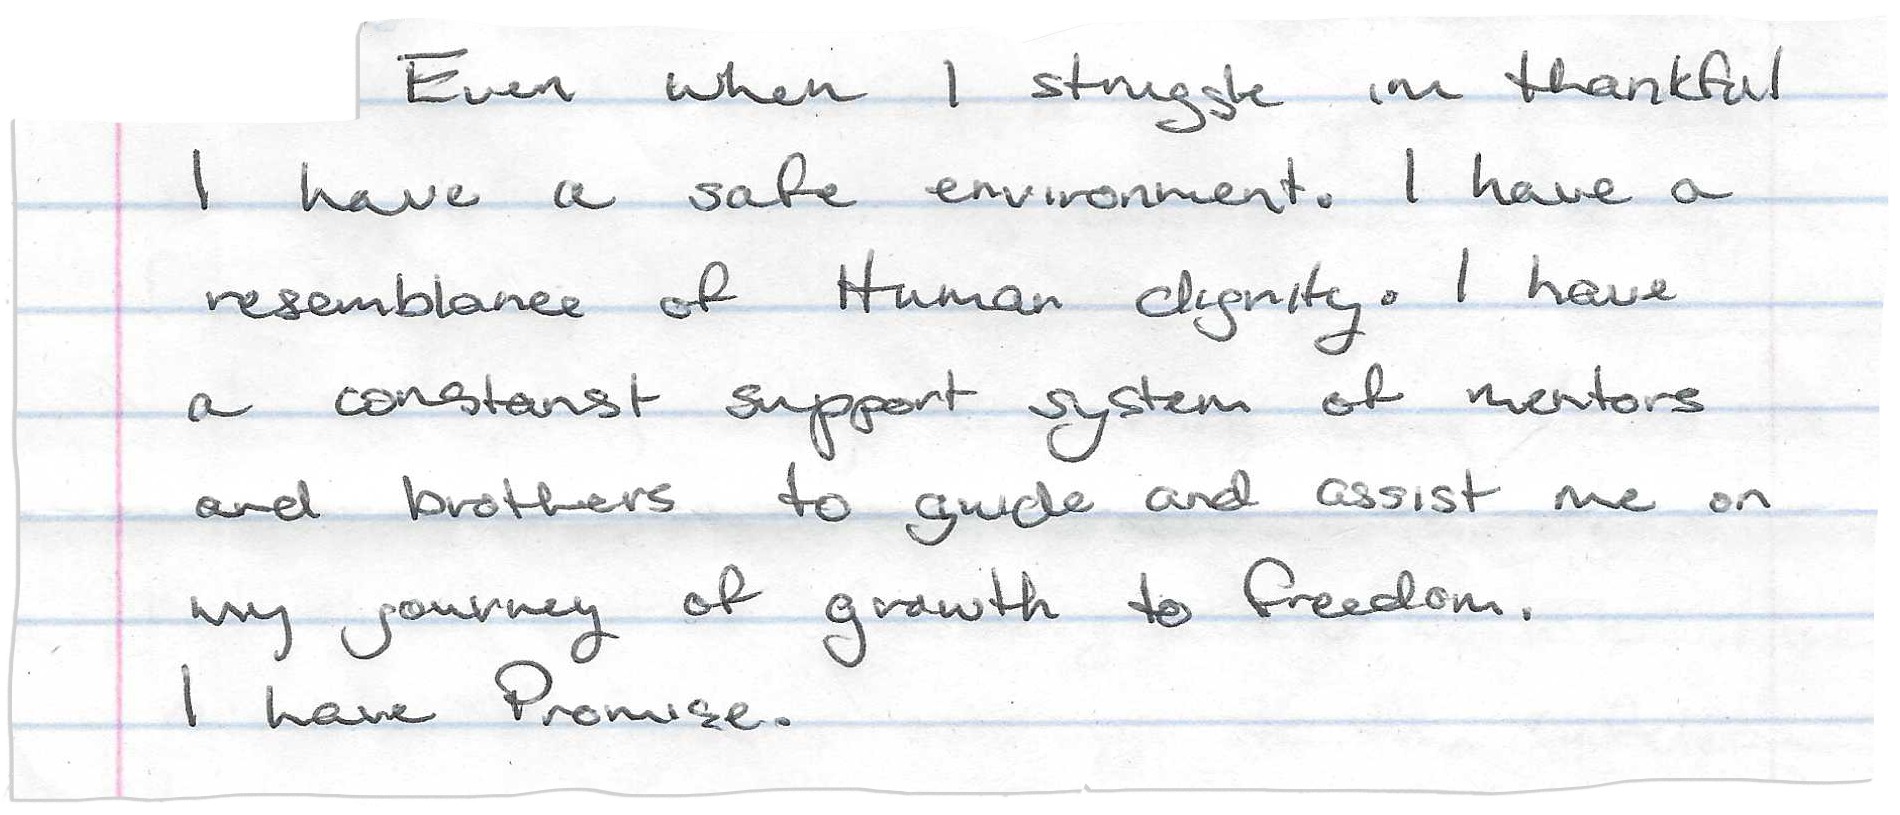 Even when I struggle im thankful
I have a safe environment. I have a
resemblance of Human dignity. I have
a constanst support system of mentors
and brothers to guide and assist me on
my journey of growth to freedom.
I have Promise.